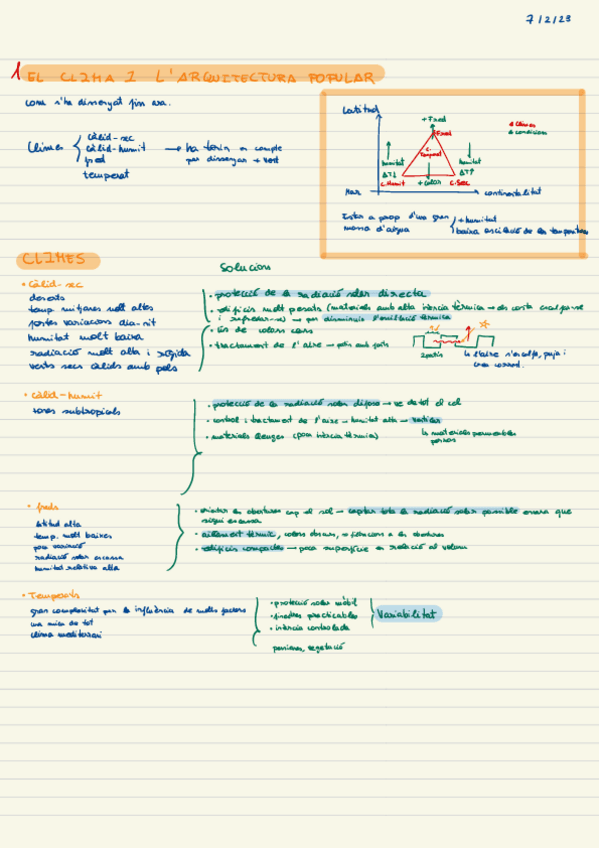 7/2/23
1 EL CLIMA I L'ARQUITECTURA POPULAR
com s'ha dissenyat fins ara.
Climes
càlid-sec
càlid-humit
fred
temperat
→ ha tenir en compte
per dissenyar + vent
Latitud
+ Fred
Fred
C. Temperat
humitat
ΔT↓
humitat
ΔT↑
C. Humit
+ calor
C. Sec
Mar
continentalitat
Climes
condicions
Estar a prop d'una gran
massa d'aigua
+ humitat
baixa oscil·lació de les temperatures
CLIMES
Solucions
• Càlid-sec
deserts
temp mitjanes molt altes
fortes variacions dia-nit
humitat molt baixa
radiació molt alta i
vents secs càlids amb pols
• protecció de la radiació solar directa
• edificis molt pesats (materials amb alta inèrcia tèrmica → els costa escalfar-se
i refredar-se) → per disminuir l'oscil·lació tèrmica
• ús de colors clars
• tractament de l'aire → patis amb
2 patis
↳ l'aire s'escalfa, puja i
crea corrent.
• Càlid-humit
zones subtropicals
• protecció de la radiació solar difosa → ve de tot el cel
• control i tractament de l'aire → humitat alta →
• materials lleugers (poca inèrcia tèrmica)
↳ materials permeables
porosos
• freds
latitud alta
temp. molt baixes
poca variació
radiació solar escassa
humitat relativa alta
• orientar les obertures cap el sol → captar tota la radiació solar possible encara que
sigui escassa
• aïllament tèrmic, colors obscurs, a les obertures
• edificis compactes → poca superfície en relació al volum
• Temperats
gran complexitat per la influència de molts factors
una mica de tot
clima mediterrani
• protecció solar mòbil
• finestres practicables
• inèrcia controlada
persianes, vegetació
Variabilitat